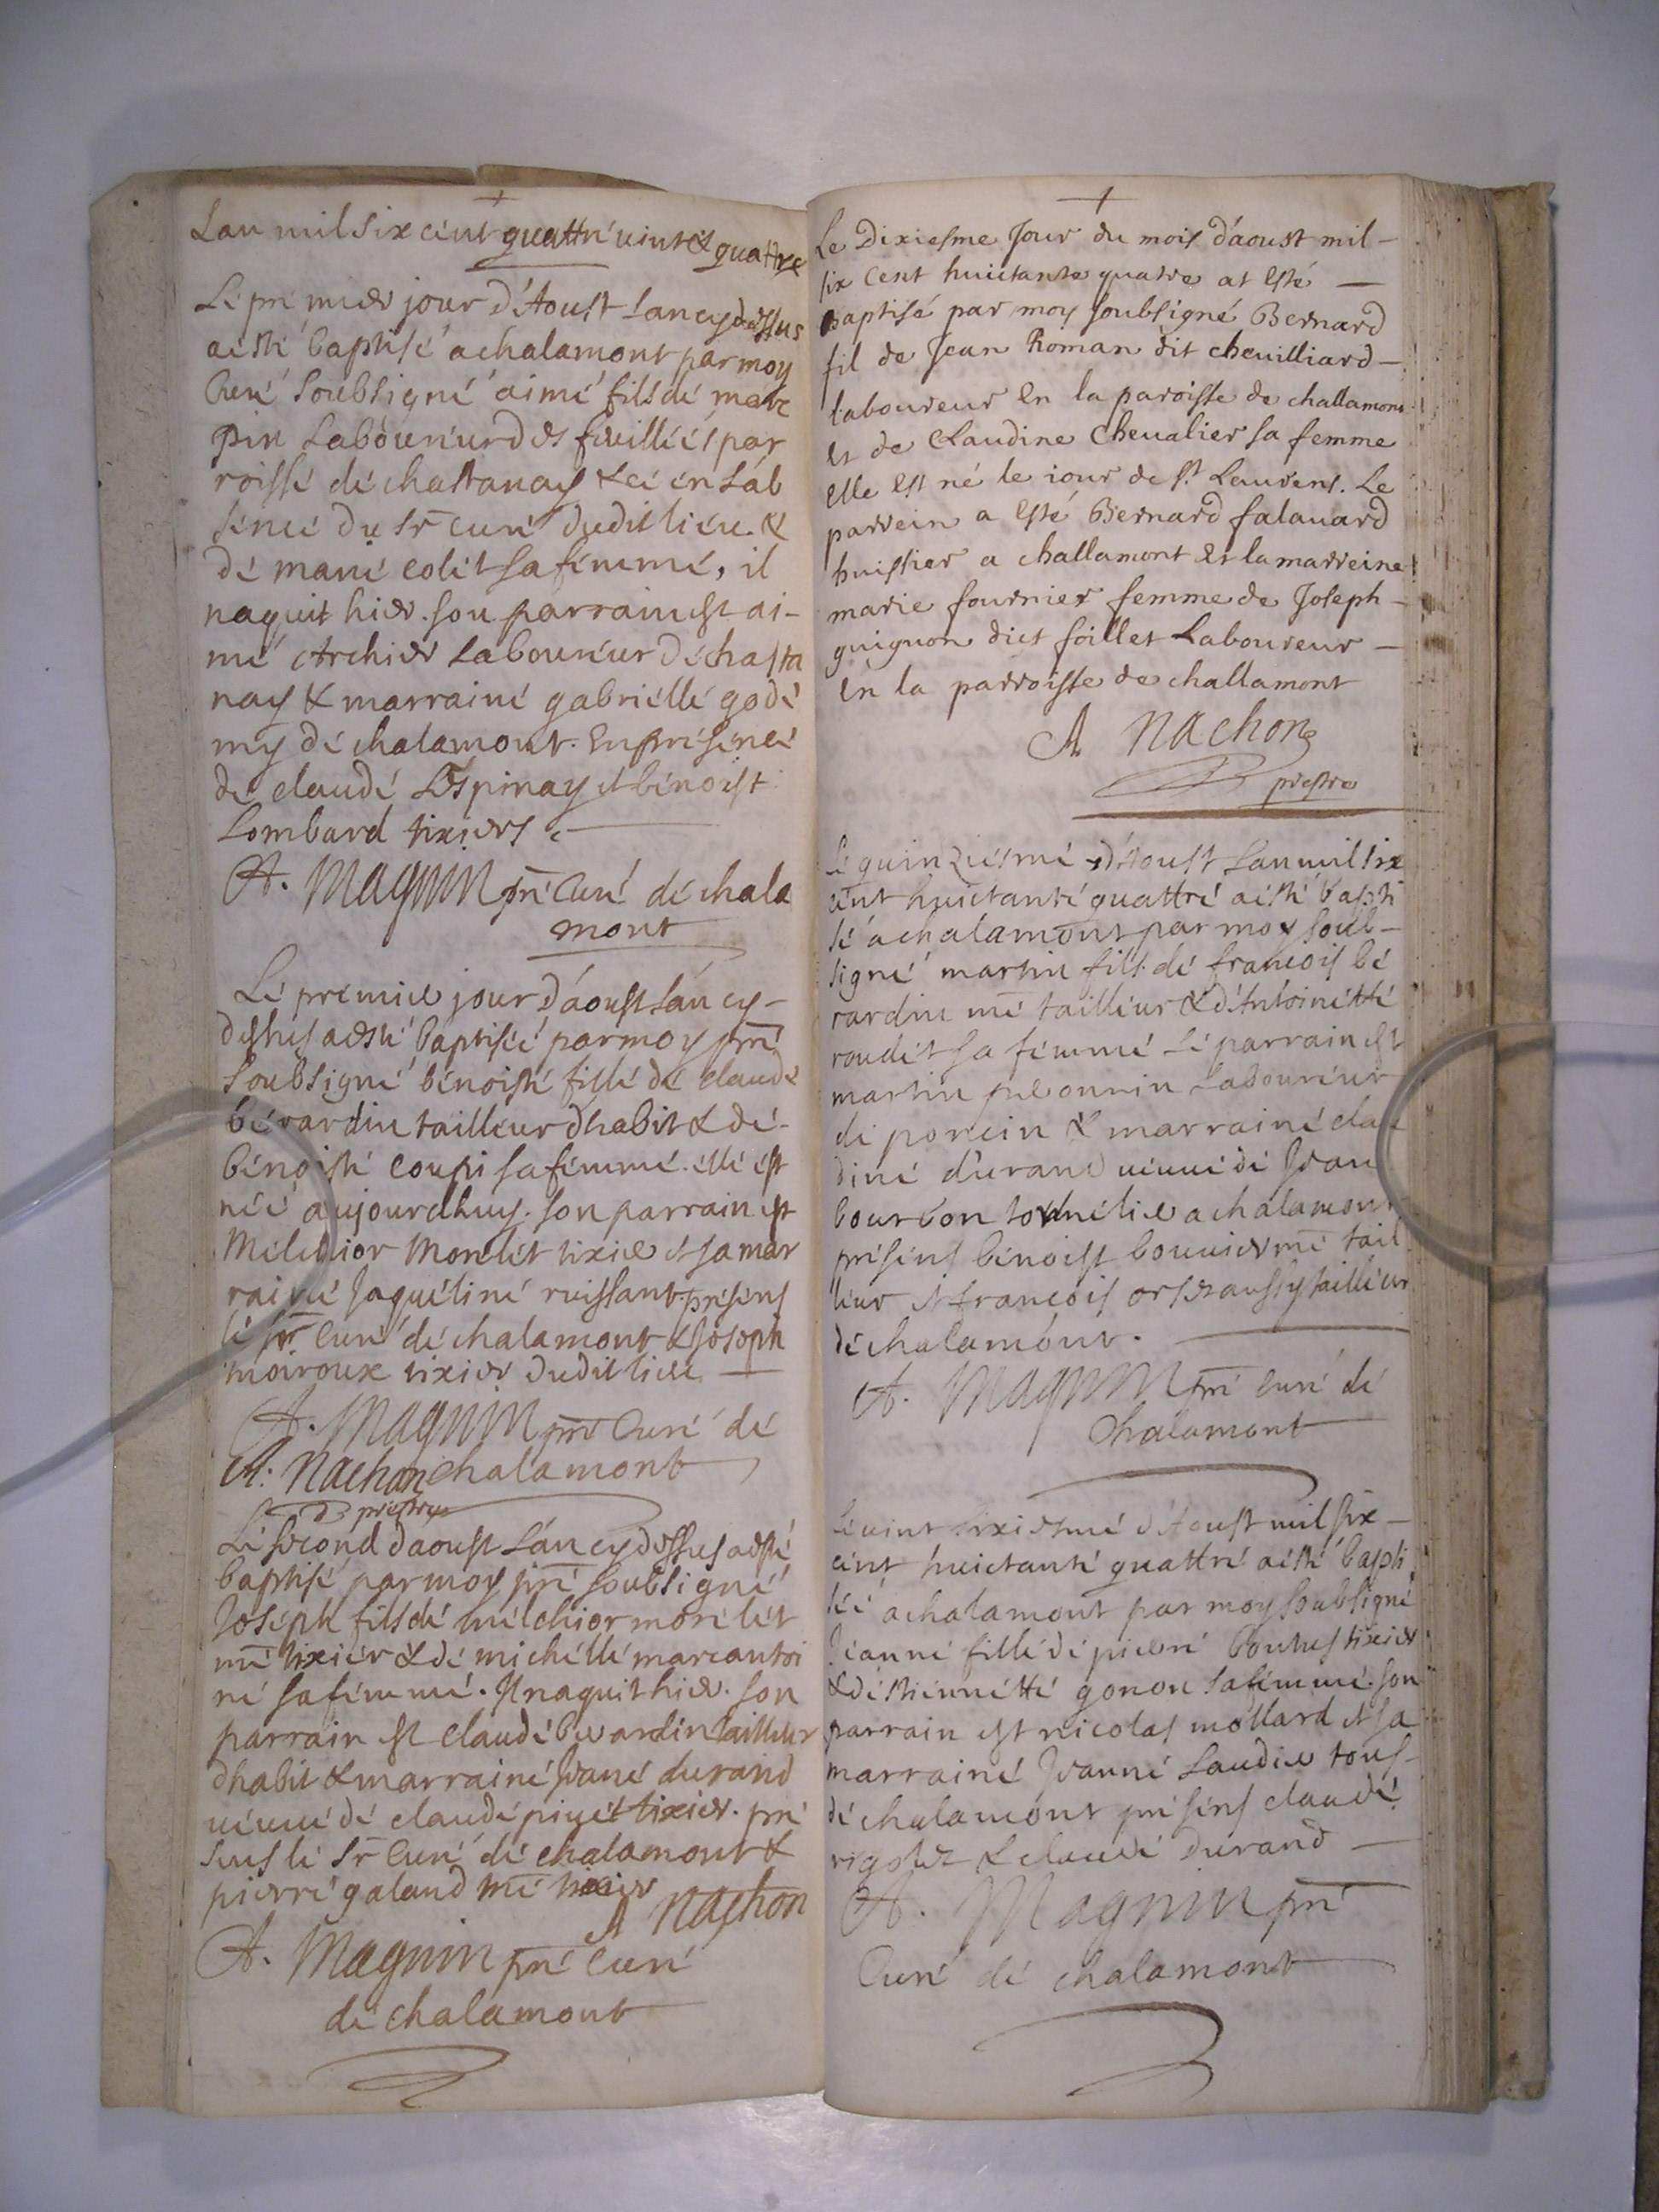 Lan mil six cent quattre vint & quattre
Le premier jour d'Aoust lan cy dessus
a esté baptisé a chalamont par moy
Curé soubsigné aimé fils de marc
pin Laboureur des fueillées par
roisse de chastanay & ce en lab
sence du sr curé dudit lieu. &
de marie colet sa femme, il
naquit hier. son parrain est ai-
mé Archier Laboureur de chasta
nay & marraine gabrielle gode
my de chalamont. En presence
de claude Lespinay et benoist
Lombard tixiers.
A. Magnin pre Curé de chala
mont
Le premier jour d'aoust lan cy-
dessus a esté baptisée par moy pre
soubsigné benoiste fille de claude
berardin tailleur dhabit & de-
benoiste coupi sa femme. elle est
née aujourdhuy. son parrain est
Melchior Morelet tixier et sa mar
raine Jaqueline ruissant presens
le sr Curé de chalamont & Joseph
moiroux tixier dudit lieu
A. Magnin pre Curé de
A. Nachon chalamont
prestre
Le second daoust lan cy dessus a esté
baptisé par moy pre soubsigné
Joseph fils de melchior morelet
me tixier & de michelle marcantoi
ne sa femme. Il naquit hier. son
parrain est claude berardin tailleur
dhabit & marraine Jeane durand
veuve de claude pivet tixier. pre
sens le sr Curé de chalamont &
pierre galand me tixier
A Nachon
A. Magnin pre Curé
de chalamont
Le Dixiesme Jour du mois d'aoust mil-
six Cent huictante quatre at Esté
Baptisé par moy soubsigné Bernard
fil de Jean Roman dit chevilliard-
laboureur En la paroisse de challamont
Et de Claudine Chevalier sa femme
Elle Est né le iour de st Laurens. Le
parrein a Esté Bernard falavard
huissier a challamont Et la marreine
marie fournier femme de Joseph-
guignon dict foillet Laboureur-
En la parroisse de challamont
A Nachon
prestre
Le quinziesme d'Aoust lan mil six
cent huictante quattre a esté bapti
sé a chalamont par moy soub-
signé martin fils de francois be
rardin me tailleur & d'Antoinette
roudet sa femme Le parrain est
martin Laboureur
de poncin & marraine clau
dine durand veuve de Jean
bourbon a chalamont
presens benoist bouvier me tail
leur et francois aussy tailleur
de chalamont.
A. Magnin pre Curé de
Chalamont
Le vint sixiesme d'Aoust mil six-
cent huictante quattre a esté bapti
sée a chalamont par moy soubsigné
Jeanne fille de pierre tixier
& d'estiennette gonon sa femme. son
parrain est nicolas mollard et sa
marraine Jeanne Laudier tous-
de chalamont presens claude
& claude Durand
A. Magnin pre
Curé de chalamont